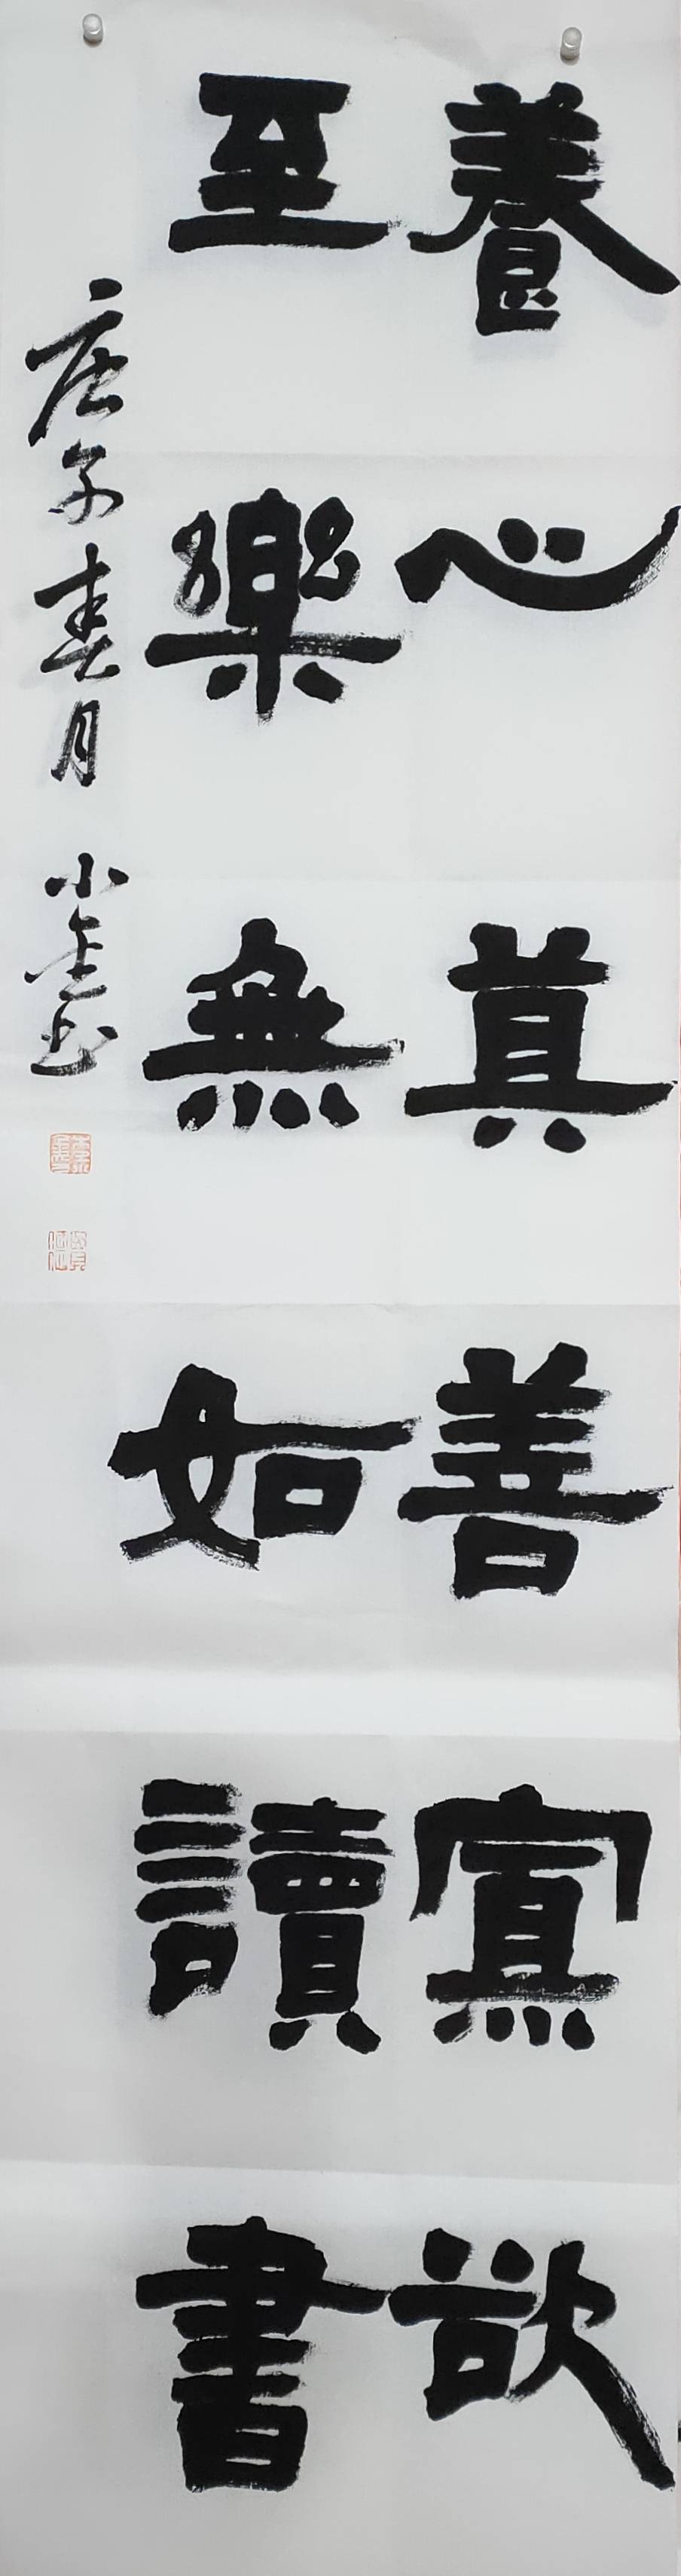 養心莫善寡欲
至樂無如讀書
庚子春月 小 书